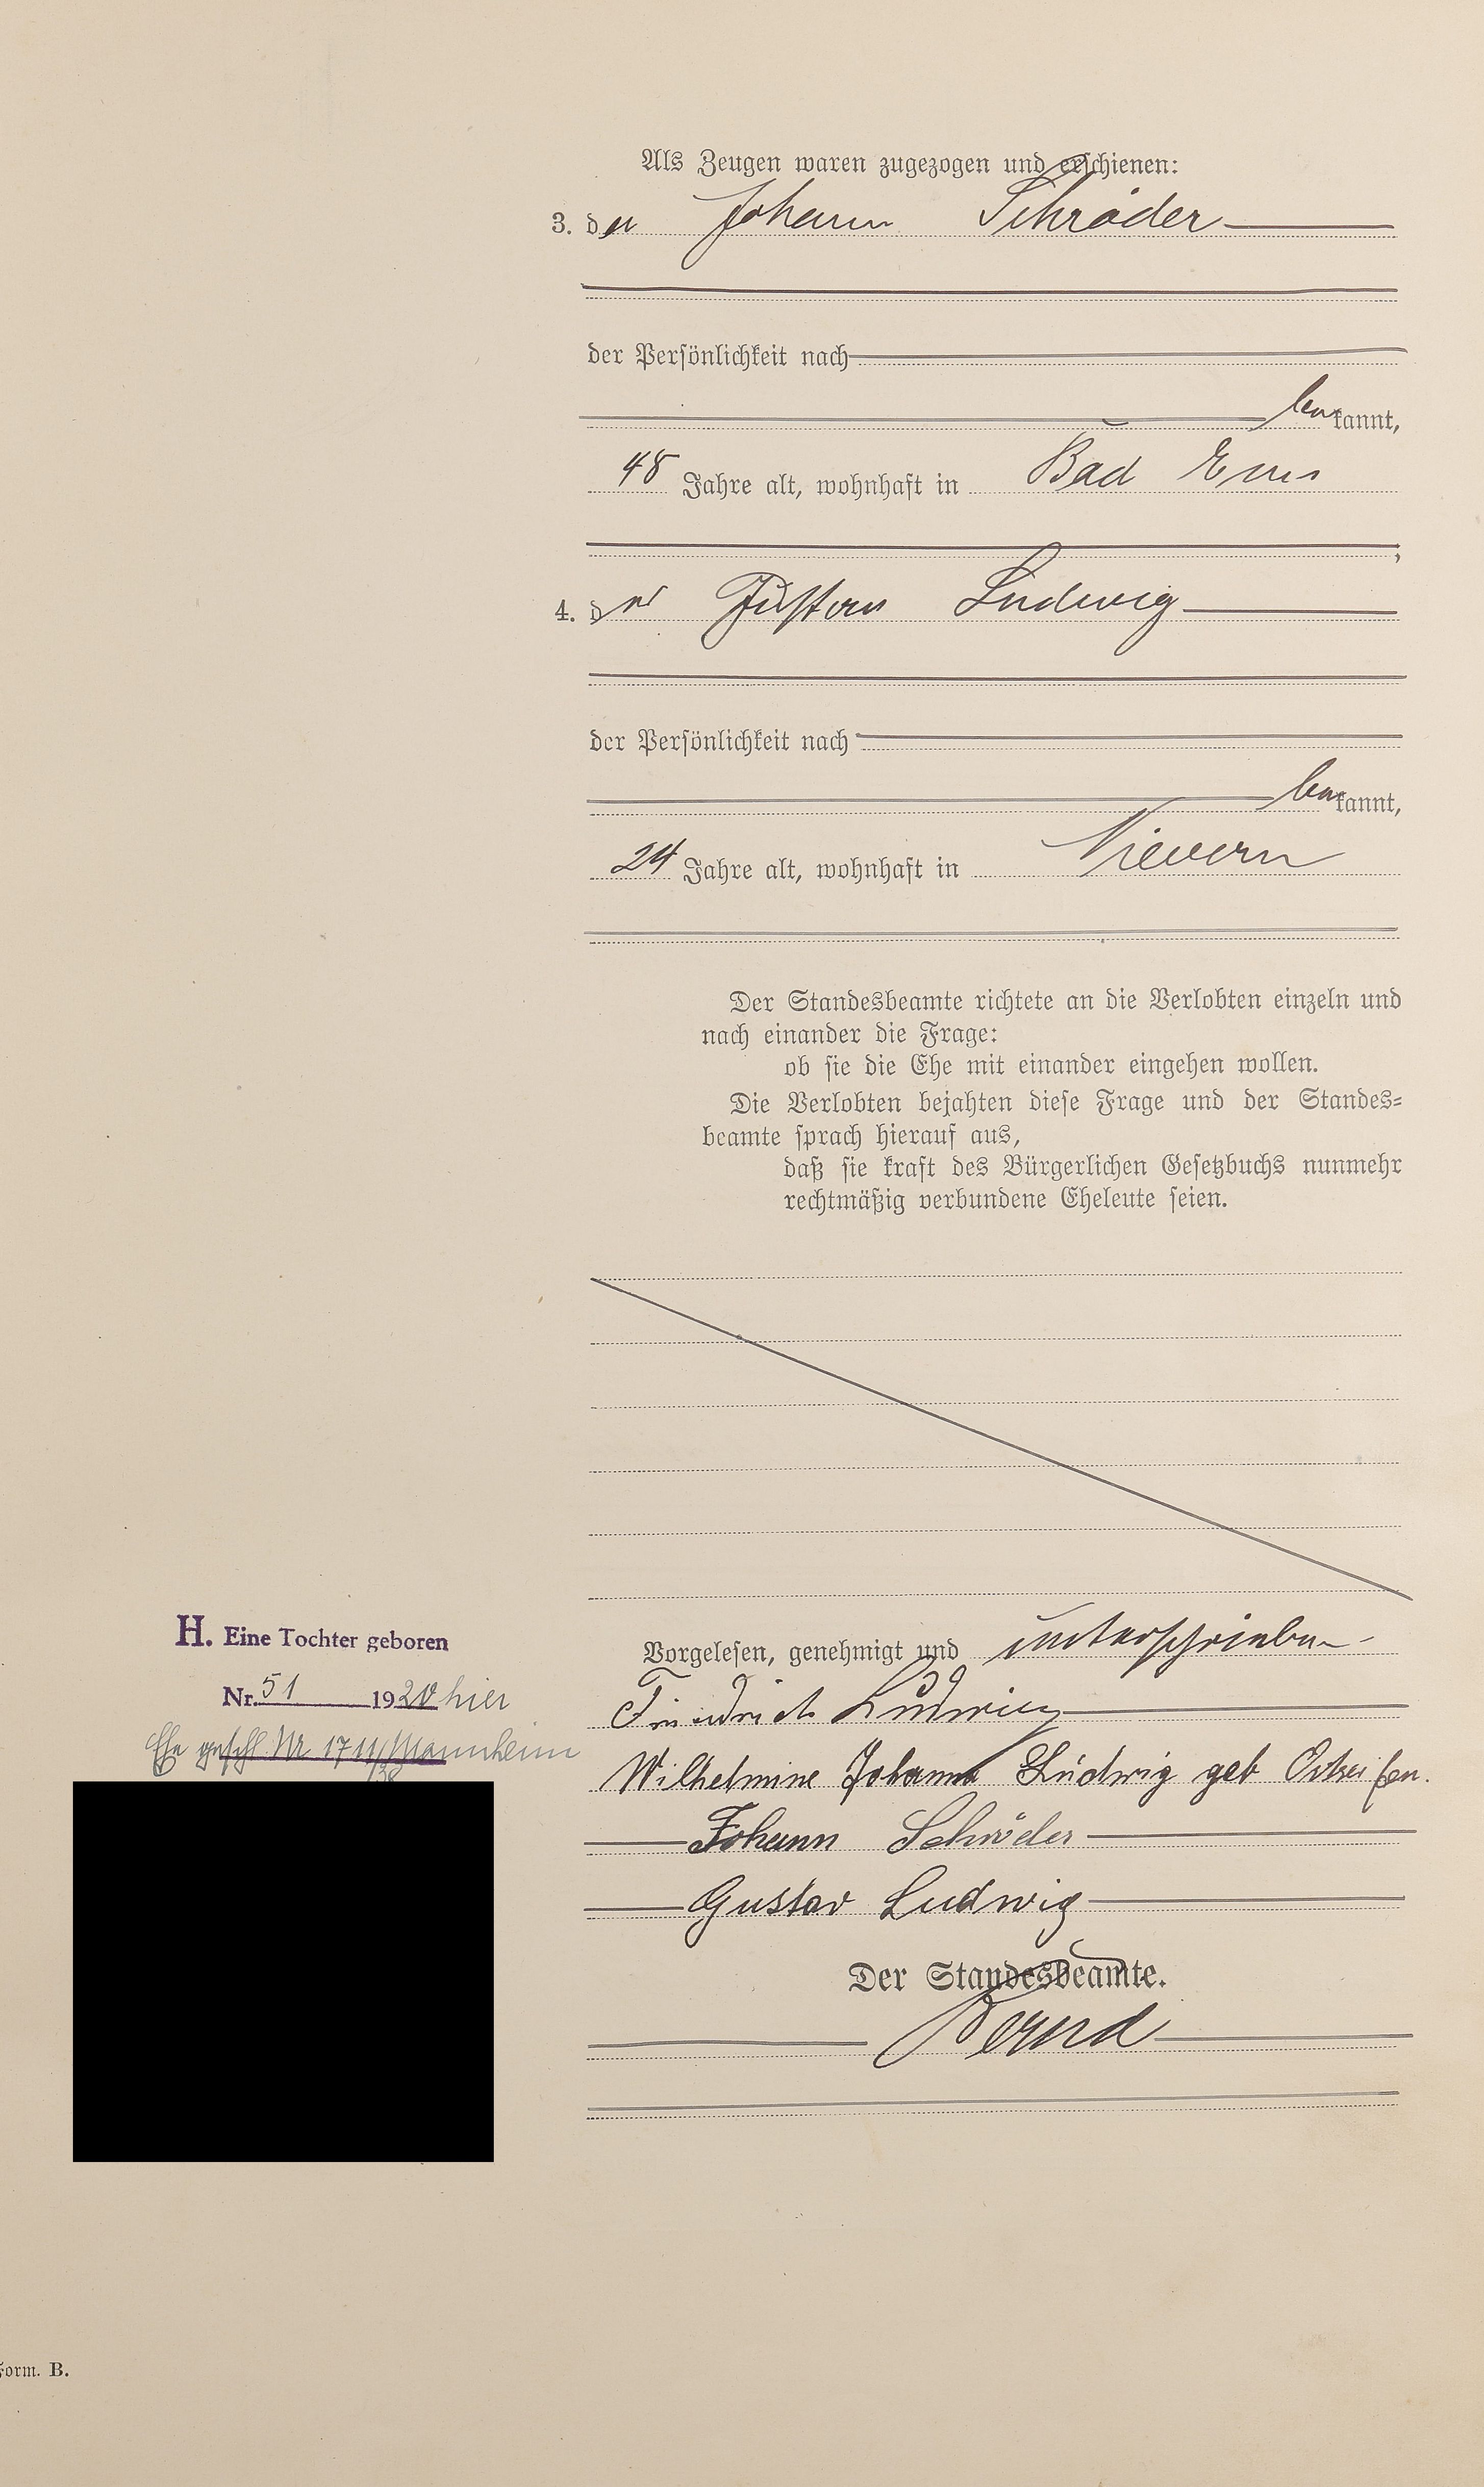 Als Zeugen waren zugezogen und erschienen:
3. der Johann Schröder
der Persönlichkeit nach
bekannt,
48 Jahre alt, wohnhaft in Bad Ems
;
4. der Gustav Ludwig
der Persönlichkeit nach
bekannt,
24 Jahre alt, wohnhaft in Nievern
Der Standesbeamte richtete an die Verlobten einzeln und
nach einander die Frage:
ob sie die Ehe mit einander eingehen wollen.
Die Verlobten bejahten diese Frage und der Standes-
beamte sprach hierauf aus,
daß sie kraft des Bürgerlichen Gesetzbuchs nunmehr
rechtmäßig verbundene Eheleute seien.
Vorgelesen, genehmigt und unterschrieben
Friedrich Ludwig
Wilhelmine Johanna Ludwig geb
Johann Schröder
Gustav Ludwig
Der Standesbeamte.
Bernd
H. Eine Tochter geboren
Nr. 51 1920 hier
Ehe geschl. Nr. 1711/38 Mannheim
Form. B.